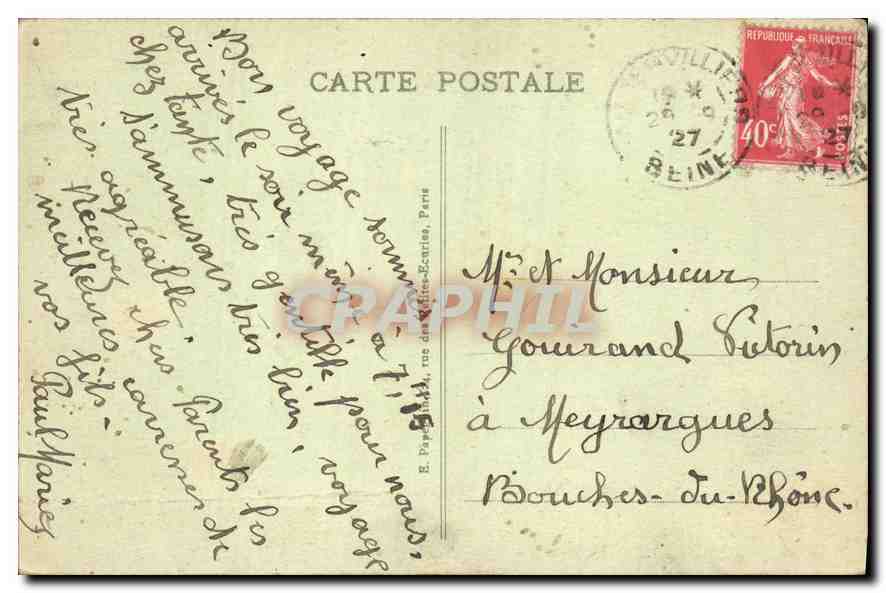 CARTE POSTALE
REPUBLIQUE FRANÇAISE
40c
POSTES
27
SEINE
Bon voyage sommes à 7h15
arrivés le soir même
chez tante, très gentille pour nous,
s'amusons très bien, voyage
très agréable.
Recevez chers Parents les
meilleures caresses de
vos fils.
Paul Marie
E. Pap 4, rue des Petites-Ecuries, Paris
CPAPHIL
Mme et Monsieur
Gourand Victorin
à Meyrargues
Bouches-du-Rhône.